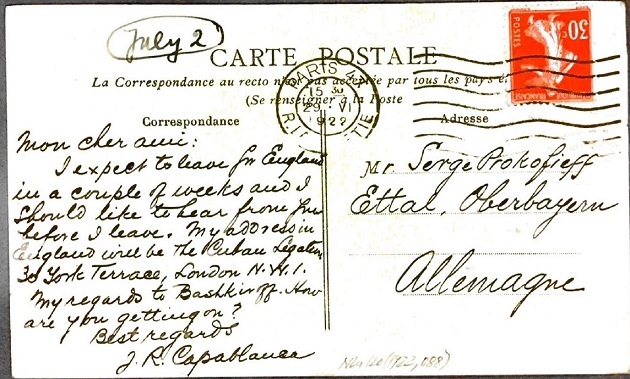 July 2
CARTE POSTALE
La Correspondance au recto n'est pas acceptée par tous les pays é
(Se renseigner à la Poste
PARIS XX
15 30
29 VI
1922
POSTES
30
Correspondance
Adresse
Mon cher ami:
I expect to leave for England
in a couple of weeks and I
should like to hear from you
before I leave. My address in
England will be the Cuban Legation
30 York Terrace, London N.W.1.
My regards to Bashkiroff. How
are you getting on?
Best regards
J. R. Capablanca
Mr. Serge Prokofieff
Ettal, Oberbayern
Allemagne